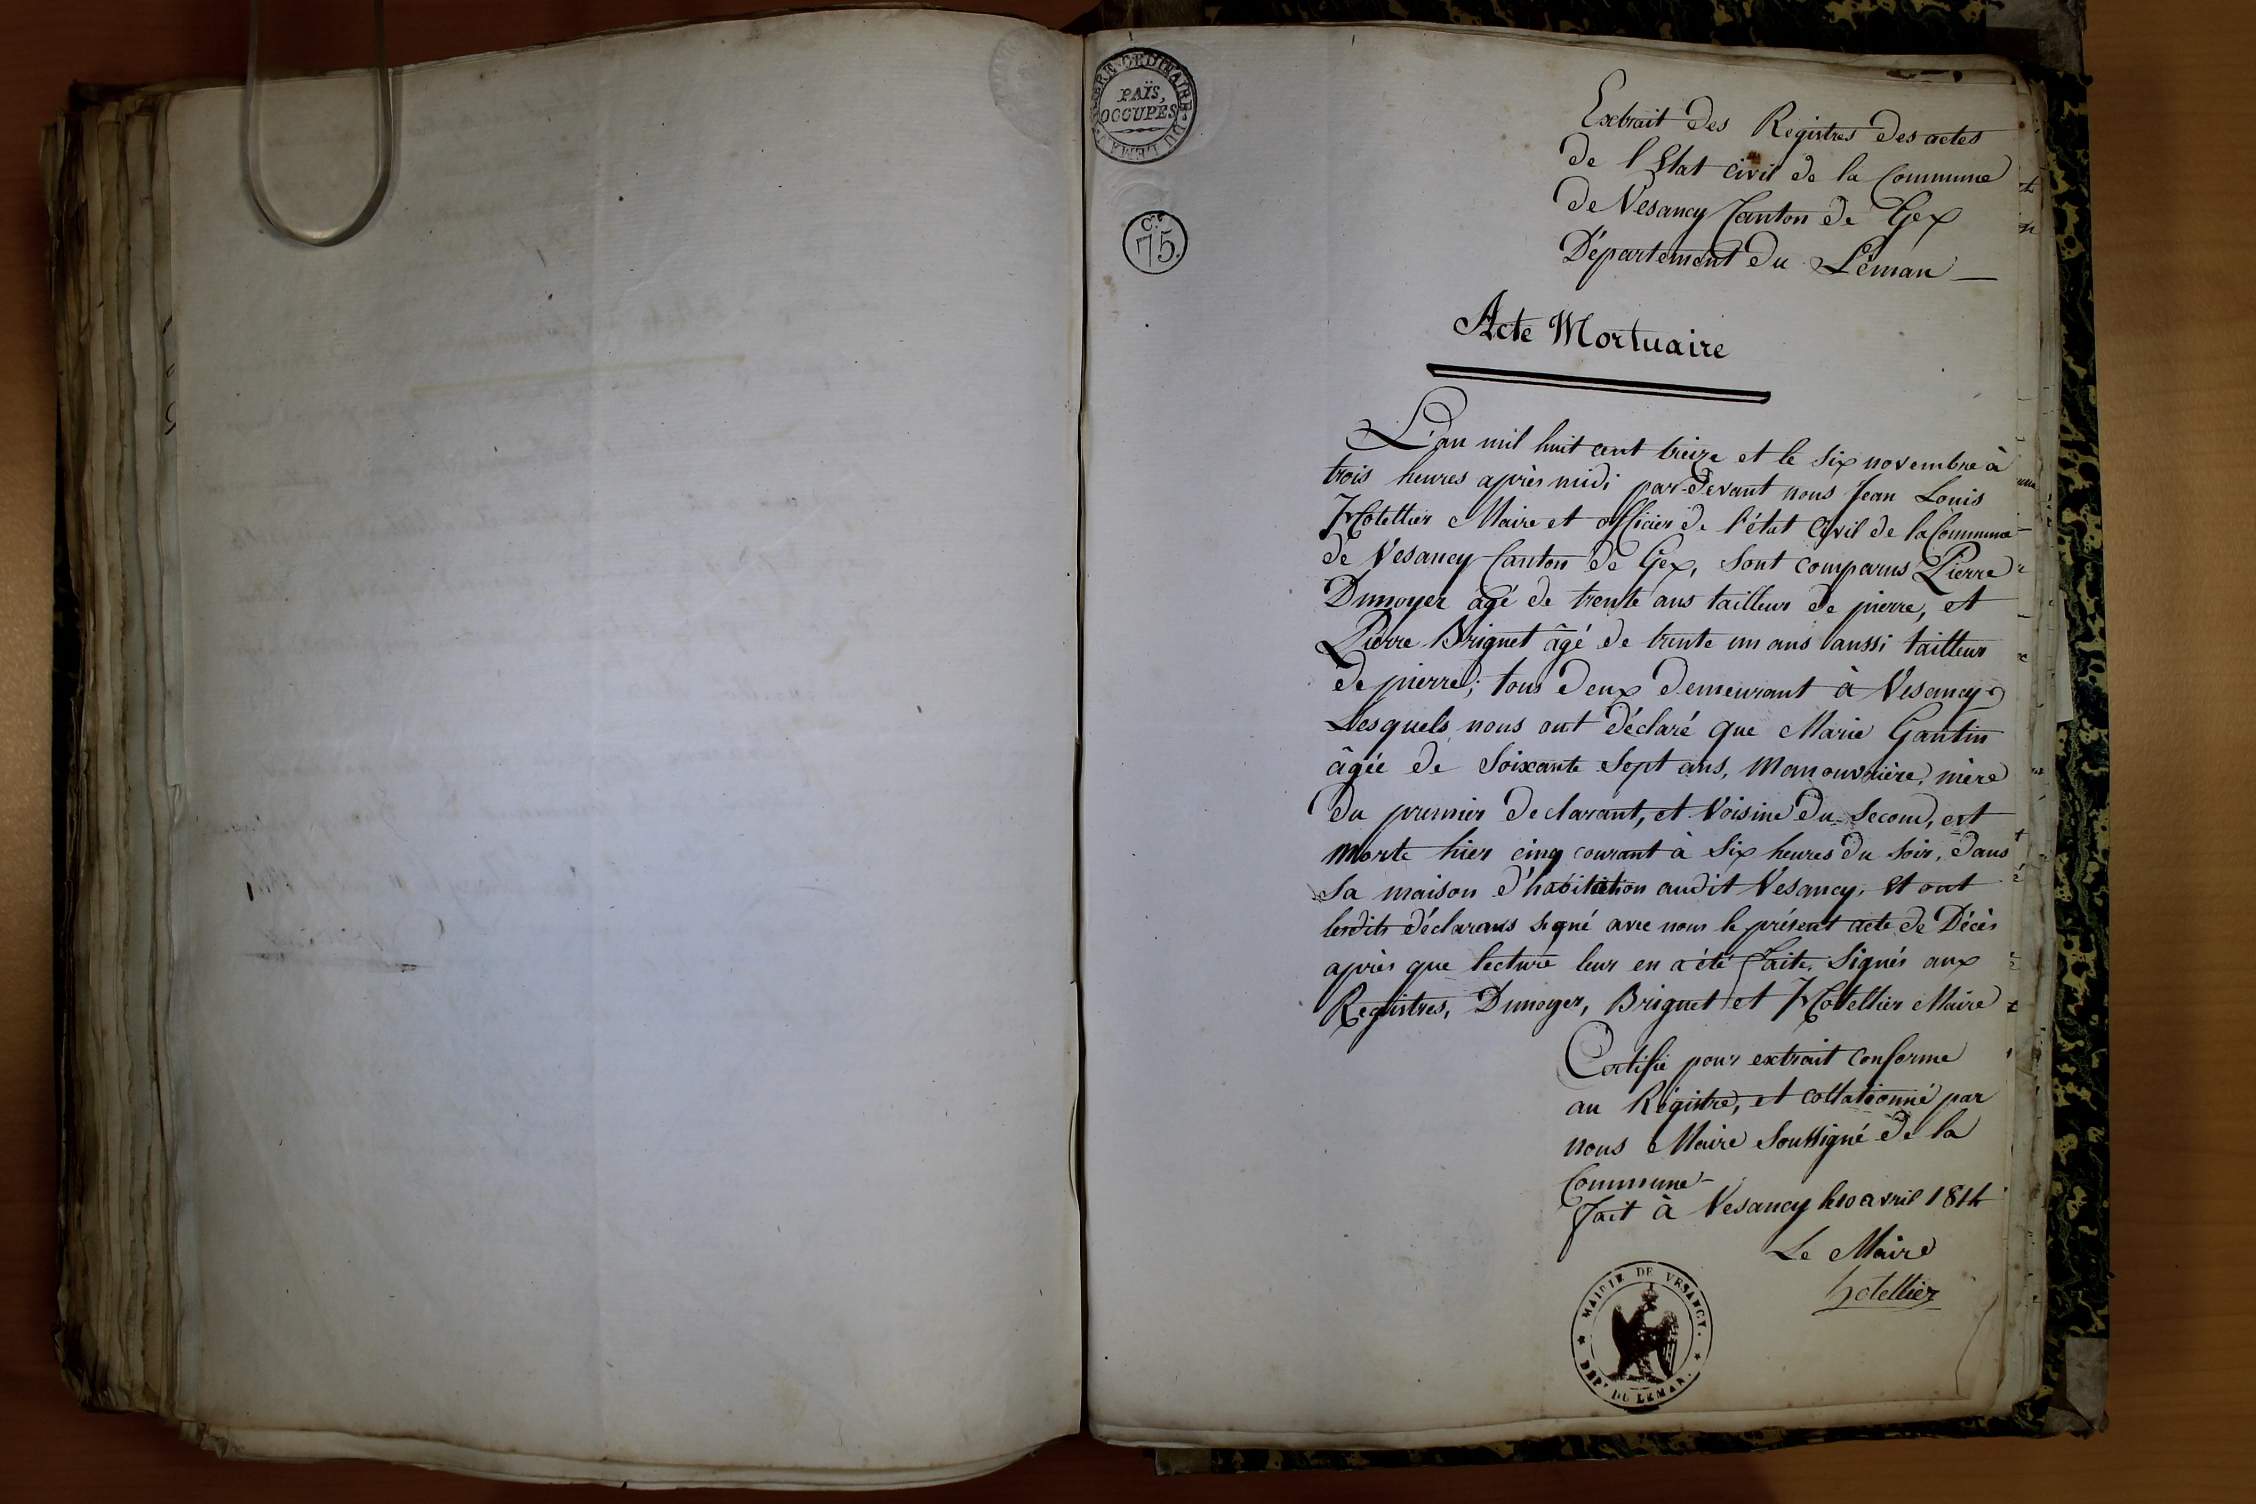 TIMBRE ORDINAIRE DU LEMAN
PAÏS,
OCCUPÉS
Cᵉ
75.
Extrait des Registres des actes
de l'Etat civil de la Commune
de Vesancy Canton de Gex
Département du Léman
Acte Mortuaire
L'an mil huit cent treize et le six novembre à
trois heures après midi par-devant nous Jean Louis
Hotellier Maire et officier de l'état Civil de la Commune
de Vesancy Canton de Gex, sont comparus Pierre
Dunoyer âgé de trente ans tailleur de pierre, et
Pierre Briguet âgé de trente un ans aussi tailleur
de pierre; tous deux demeurant à Vesancy
Lesquels nous ont déclaré que Marie Gantin
âgée de soixante sept ans, manouvrière, mère
du premier declarant, et voisine du second, est
morte hier cinq courant à six heures du soir, dans
sa maison d'habitation audit Vesancy, et ont
lesdits déclarans signé avec nous le présent acte de Décès
après que lecture leur en a été faite, signés aux
Registres, Dunoyer, Briguet et Hotellier Maire
Certifié pour extrait conforme
au Régistre, et collationné par
nous Maire Soussigné de la
Commune
fait à Vesancy le 10 avril 1814
Le Maire
hotellier
MAIRIE DE VESANCY.
DEPT. DU LEMAN.